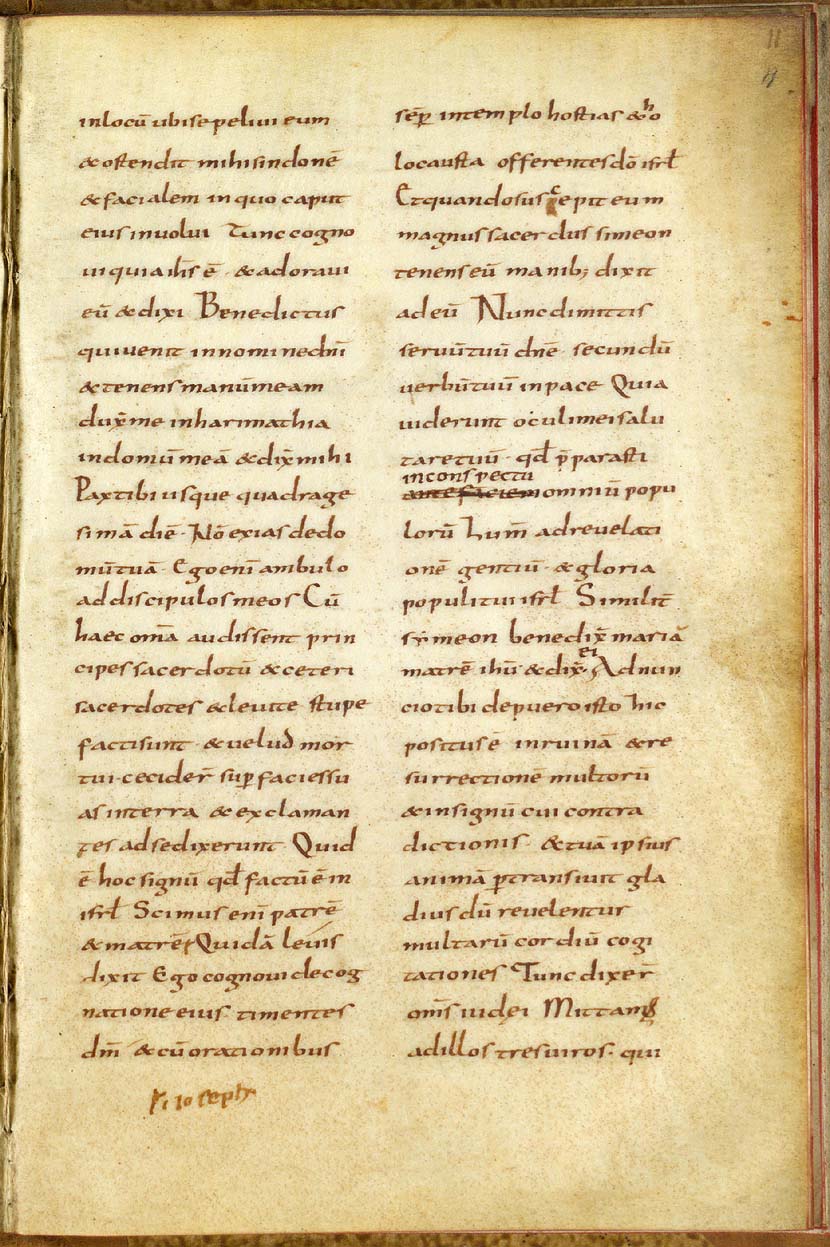 11
inlocū ubisepeliui eum
&ostendit mihisindonē
&facialem inquo caput
eius inuolui Tunc cogno
ui quia ih̄s ē · &adoraui
eū &dixi Benedictus
qui uenit innominedn̄i
&tenensmanūmeam
dux̄me inharimathia
indomūmeā &dix̄mihi
Paxtibi usque quadrage
simā diē · Nō exiasdedo
mūtuā · Egoenī ambulo
addiscipulosmeos Cū
haec om̄a audissent prin
cipessacerdotū &ceteri
sacerdotes &leuite stupe
factisunt · &uelud mor
tui·cecider̄ sup̄ faciessu
as interra &exclaman
tes adsedixerunt Quid
ē hocsignū qđ factū ē in
isrł Scimus enī patrē
&matrē Quidā leuis
dixit Ego cognoui decog
natione eius timentes
dm̄ &cū orationibus
sēp̄ intemplo hostias &ho
locausta offerentesdō isrł
Etquandosuscepit eum
magnussacerdus simeon
tenenseū manib; dixit
adeū Nuncdimittis
seruūtuū dn̄e secundū
uerbūtuū inpace Quia
uiderunt oculimeisalu
taretuū · qđ p̄parasti
inconspectu
ante faciem omniū popu
lorū Lum̄ adreuelati
onē gentiū · &gloria
populitui isrł Similit̄
symeon benedix̄ mariā
ei
matrē ihū &dix̄ Adnun
ciotibi depuero isto hic
positus ē inruinā &re
surrectionē multorū
&insignū cui contra
dictionis · &tuā ipsius
animā p̄transiuit gla
dius dū reuelentur
multarū cordiū cogi
tationes Tunc dixer̄
om̄s iudei Mittam;
adillos tresuiros· qui
ioseph